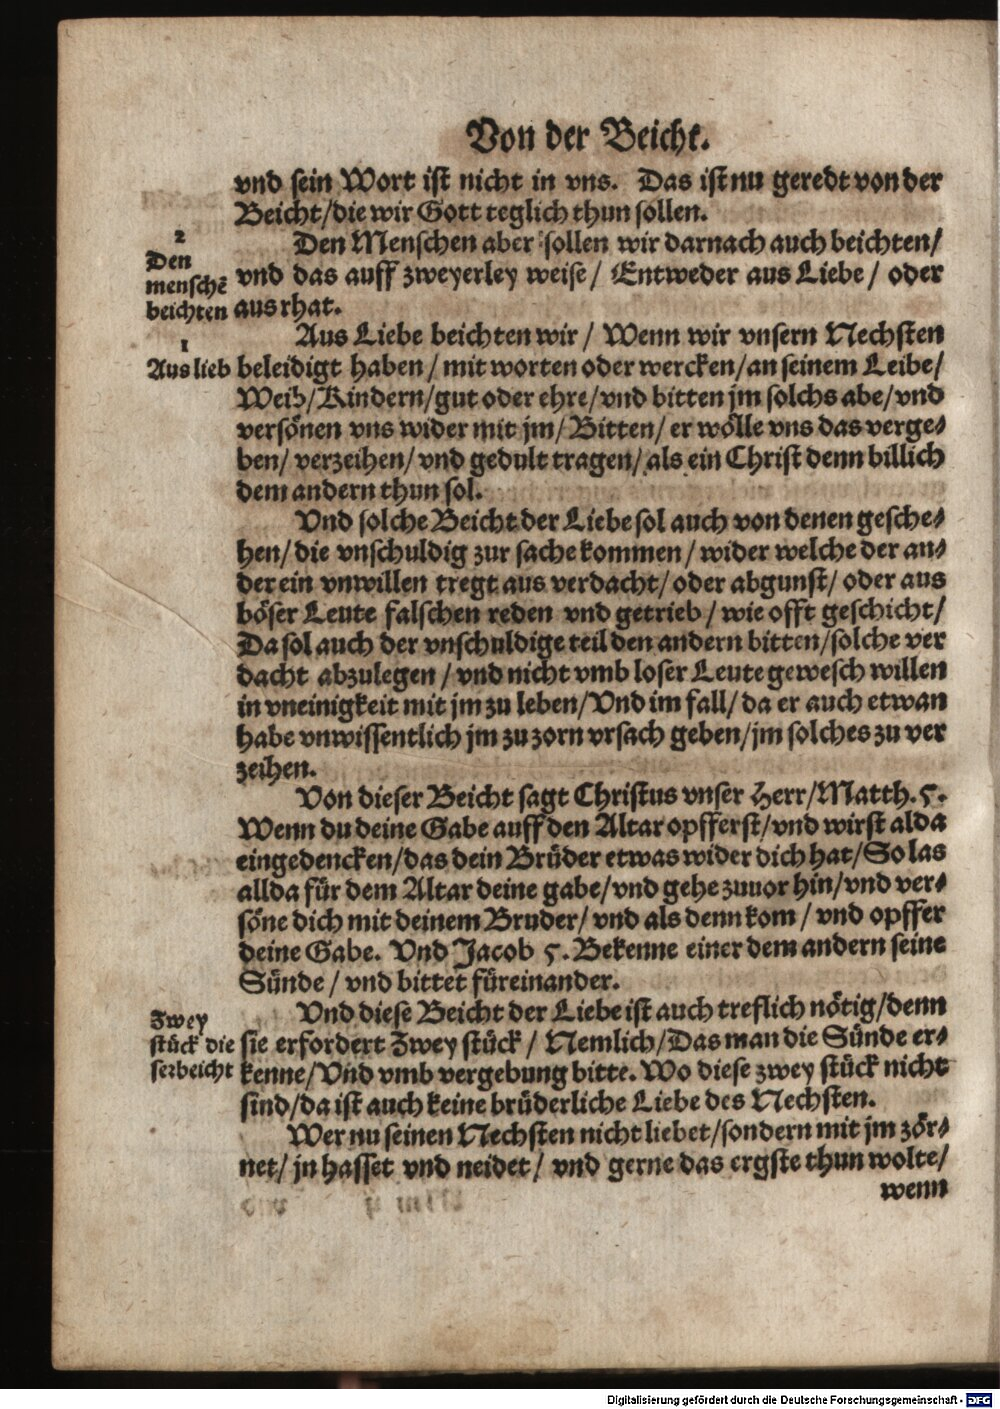 Von der Beicht.
vnd sein Wort ist nicht in vns. Das ist nu geredt von der
Beicht/die wir Gott teglich thun sollen.
2
Den
menschē
beichten
Den Menschen aber sollen wir darnach auch beichten/
vnd das auff zweyerley weise/ Entweder aus Liebe/ oder
aus rhat.
1
Aus lieb
Aus Liebe beichten wir/ Wenn wir vnsern Nechsten
beleidigt haben/ mit worten oder wercken/an seinem Leibe/
Weib/Kindern/gut oder ehre/vnd bitten jm solchs abe/vnd
versönen vns wider mit jm/Bitten/ er wölle vns das verge-
ben/ verzeihen/ vnd gedult tragen/ als ein Christ denn billich
dem andern thun sol.
Vnd solche Beicht der Liebe sol auch von denen gesche-
hen/ die vnschuldig zur sache kommen/ wider welche der an-
der ein vnwillen tregt aus verdacht/ oder abgunst/ oder aus
böser Leute falschen reden vnd getrieb/ wie offt geschicht/
Da sol auch der vnschuldige teil den andern bitten/solche ver
dacht abzulegen/ vnd nicht vmb loser Leute gewesch willen
in vneinigkeit mit jm zu leben/Vnd im fall/ da er auch etwan
habe vnwissentlich jm zu zorn vrsach geben/jm solches zu ver
zeihen.
Von dieser Beicht sagt Christus vnser Herr/Matth. 5.
Wenn du deine Gabe auff den Altar opfferst/vnd wirst alda
eingedencken/das dein Brüder etwas wider dich hat/So las
allda für dem Altar deine gabe/vnd gehe zuuor hin/vnd ver-
söne dich mit deinem Bruder/ vnd als denn kom/ vnd opffer
deine Gabe. Vnd Jacob 5. Bekenne einer dem andern seine
Sünde/ vnd bittet füreinander.
Zwey
stück die
ser beicht
Vnd diese Beicht der Liebe ist auch treflich nötig/denn
sie erfordert Zwey stück/ Nemlich/Das man die Sünde er-
kenne/Vnd vmb vergebung bitte. Wo diese zwey stück nicht
sind/da ist auch keine brüderliche Liebe des Nechsten.
Wer nu seinen Nechsten nicht liebet/sondern mit jm zör-
net/ jn hasset vnd neidet/ vnd gerne das ergste thun wolte/
wenn
Digitalisierung gefördert durch die Deutsche Forschungsgemeinschaft - DFG